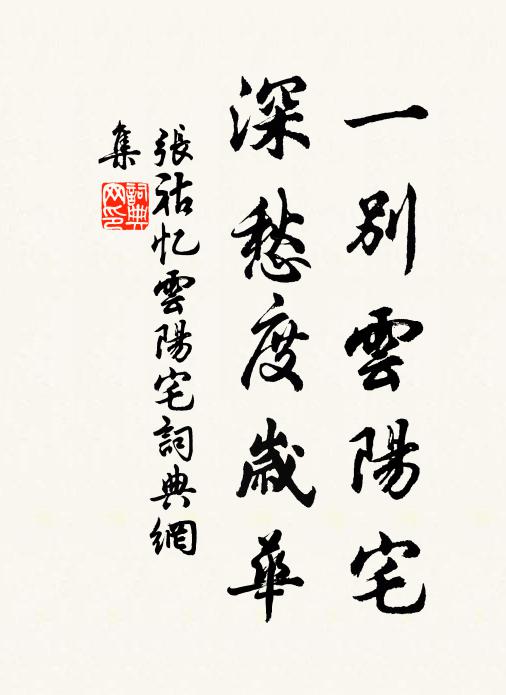 一別雲陽宅
深愁度歲華
張祜忆雲陽宅詞典網
集
詞典網印